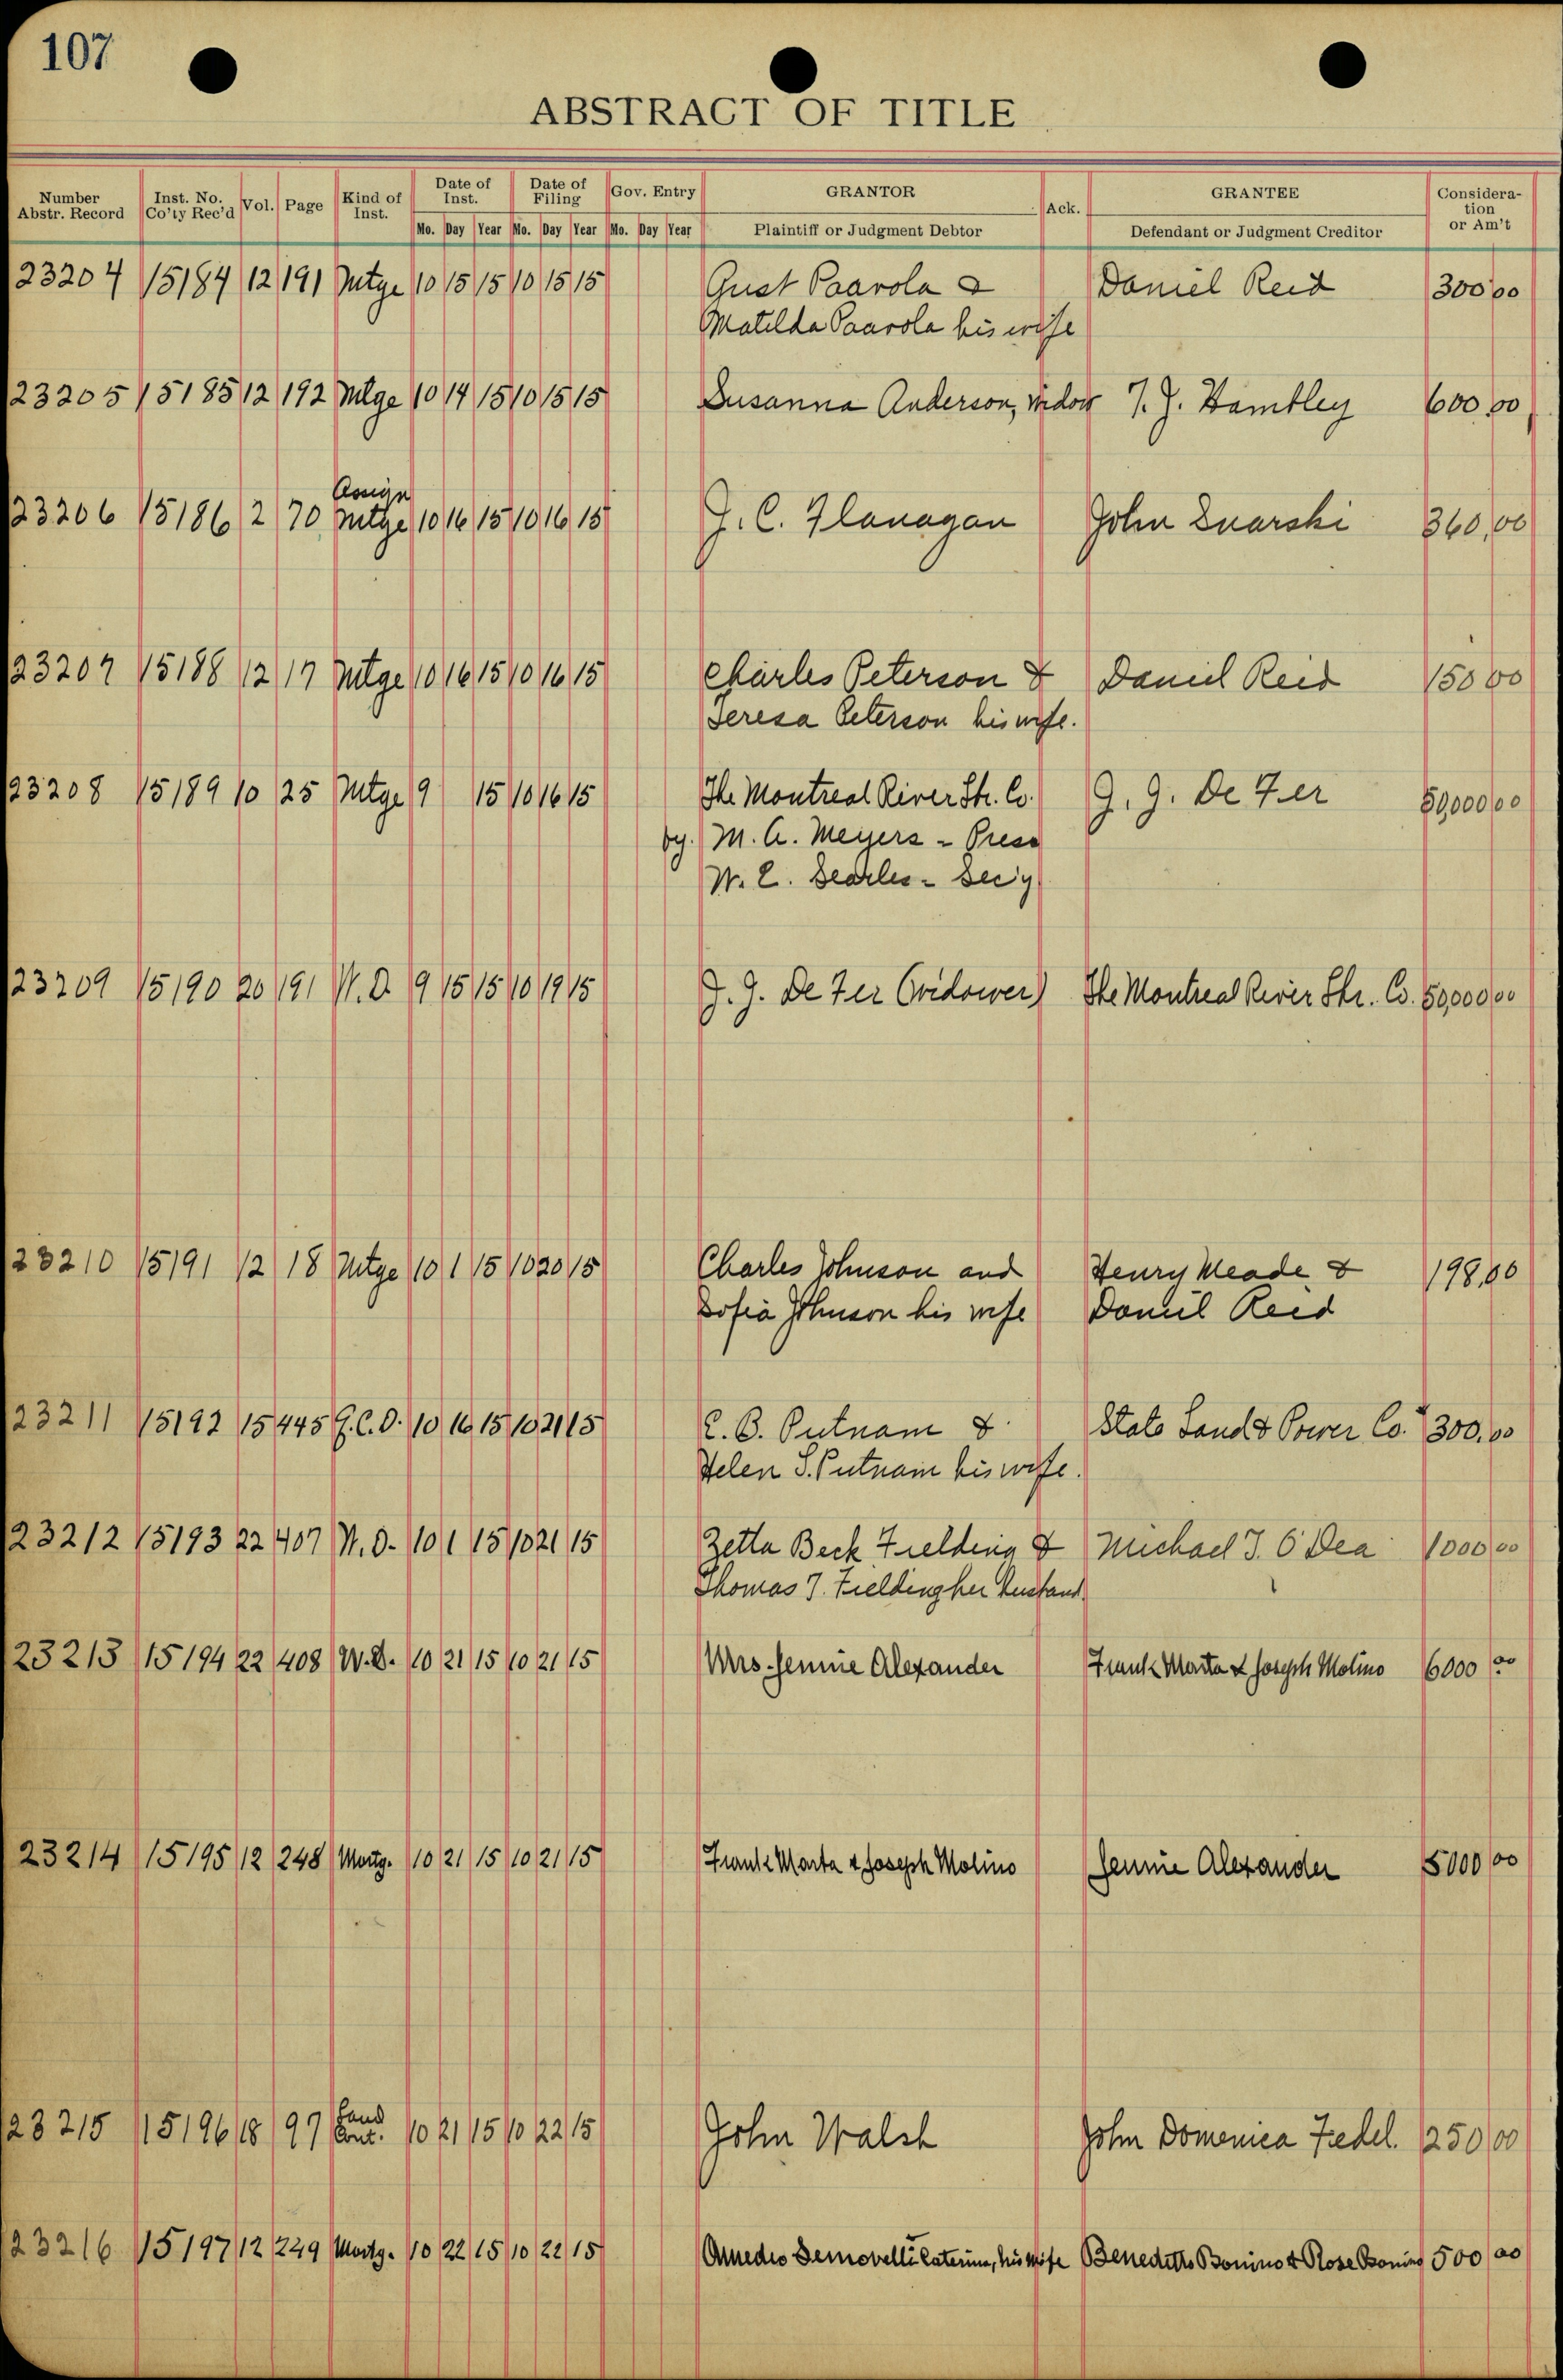 107
ABSTRACT OF TITLE
Number Abstr. Record Inst. No. Co'ty Rec'd Vol. Page Kind of Inst. Date of Inst. Date of Filing Gov. Entry GRANTOR Ack. GRANTEE Consideration or Am't
Mo. Day Year Mo. Day Year Mo. Day Year Plaintiff or Judgment Debtor Defendant or Judgment Creditor
23204 15184 12 191 Mtge 10 15 15 10 15 15 Gust Paavola & Daniel Reid 300 00
Matilda Paavola his wife
23205 15185 12 192 Mtge 10 14 15 10 15 15 Susanna Anderson, widow T. J. Hambley 600 00
Assign
23206 15186 2 70 Mtge 10 16 15 10 16 15 J. C. Flanagan John 360,00
23207 15188 12 17 Mtge 10 16 15 10 16 15 Charles Peterson & Daniel Reid 150 00
Teresa Peterson his wife.
23208 15189 10 25 Mtge 9 15 10 16 15 The Montreal River Str. Co. J. J. De Fer 50,000 00
by. M. A. Meyers - Pres
W. E. Searles - Sec'y
23209 15190 20 191 W. D. 9 15 15 10 19 15 J. J. De Fer (widower) The Montreal River Str. Co. 50,000 00
23210 15191 12 18 Mtge 10 1 15 10 20 15 Charles Johnson and Henry Meade & 198,00
Sofia Johnson his wife Daniel Reid
23211 15192 15 445 Q. C. D. 10 16 15 10 21 15 C. B. Putnam & State Land & Power Co. 300.00
Helen S. Putnam his wife.
23212 15193 22 407 W. D. 10 1 15 10 21 15 Zetta Beck Fielding & Michael J. O'Dea 1000 00
Thomas J. Fielding her husband.
23213 15194 22 408 W. D. 10 21 15 10 21 15 Mrs. Jennie Alexander Frank Marta & Joseph Molino 6000 00
23214 15195 12 248 Mortg. 10 21 15 10 21 15 Frank Marta & Joseph Molino Jennie Alexander 5000 00
Land
23215 15196 18 97 Cont. 10 21 15 10 22 15 John Walsh John Domenica Fedel. 250 00
23216 15197 12 249 Mortg. 10 22 15 10 22 15 Amedeo Caterina, his wife Benedetto Bonino & Rose Bonino 500 00